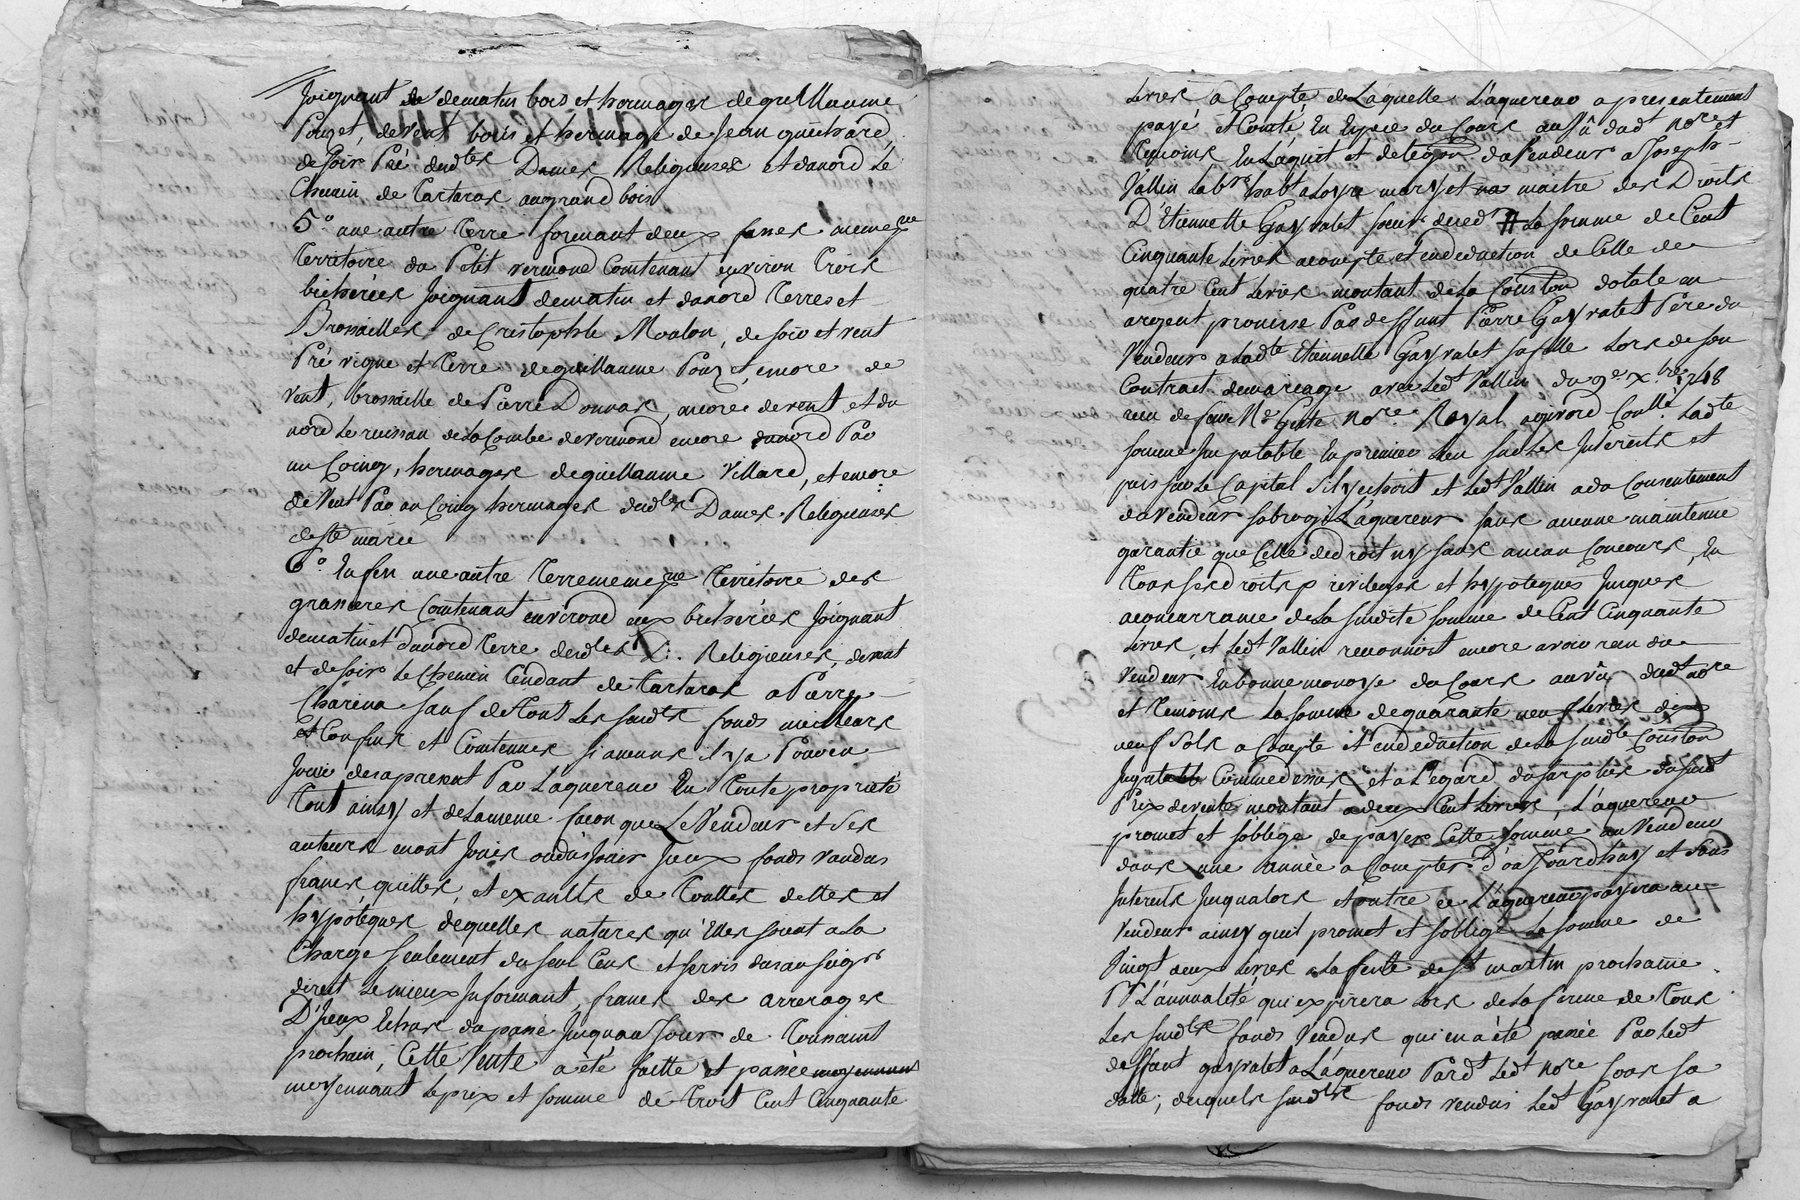 Joignant de dematin bois et hermages de guillaume
Pouzet, devent bois et hermage de Jean guichard
desoir Pré desdtes Dames Religieuses et danord Le
Chemin de Tartaras augrand bois
5° une autre Terre formant deux fasses meme que
Territoire du Petit vermond Contenant environ Trois
bicherées Joignant dematin et danord Terres et
Brossailles de Cristophle Moulon, desoir et vent
Pré vigne et Terre deguillaume Pouzet, encore de
vent, brossaille de Pierre Donnas, encore devent et du
nord Le ruisseau delaCombe devermond encore danord Par
un Coing, hermages deguillaume Villard, et encore
de Vent Par un Coing hermages desdtes Dames Religieuses
de Ste marie
6° Enfin une autre Terre meme que Territoire des
granieres Contenant environ deux bicherées Joignant
dematin et danord Terre desdtes D. Religieuses, devent
et desoir Le Chemin Tendant de Tartaras a Pierre
Charina sauf de Tout Les susdts fonds meilleurs
Confins et Contenues si aucuns il y a Pouren
Jouir desapresent Par Laquereur En Toute proprieté
Tout ainsy et delameme façon que LeVendeur et ses
auteurs enont Jouis oudus Jouir Iceux fonds vandus
francs quittes, et exants de Touttes dettes et
hypoteques dequelles natures qu'Elles soient a la
Charge seulement du seul Cens et servis dus au seigr
direct Le mieux Informant, francs des arrerages
D'Iceux Echus du passé Jusquau Jour de Toussaint
prochain, Cette Vente a été faitte et passée moyennant
moyennant Le prix et somme de Trois Cent Cinquante
Livres a Compte de Laquelle L'aquereur a presentement
payé et Conté En Espece du Cours au Vû dudt Nore et
Temoins En L'aquit et du Vendeur a Joseph
Vallin Labr. habt a Loyre mary et maitre des Droits
D'Etiennette Gayvalet soeur dud. # La somme de Cent
Cinquante Livres acompte et endeduction de Celle de
quatre Cent Livres montant dela Constion dotale en
argent promise Par deffunt Pierre Gayvalet Père du
Vendeur a Ladte Etiennette Gayvalet safille Lors de son
Contract demariage avec Ledt Vallin du 9e Xbre 1748
receu de feu Me Gente Nore Royal agivord Conllé. Ladte
somme Imputable En premier Lieu sur Les Interests et
puis sur Le Capital Silyechoit et Ledt Vallin a du Consentement
du Vendeur subrogé L'aquereur sans aucune maintenue
garantie que Celle dedroit ny sans aucun Concours, En
Tous ses droits privileges et hypoteques Jusques
aconcurrance de La susdite somme de Cent Cinquante
Livres, et Ledt Vallin reconnoit encore avoir receu du
Vendeur Enbonne monoye du Cours au vû dudt nore
et Temoins La somme dequarante neuf Livres dix
neuf sols a Compte et endeduction de La susdte Constion
Imputable Commedessus, et a l'egard du surplus dususdt
Prix devente montant adeux Cent Livres, L'aquereur
promet et soblige de payer Cette somme au Vendeur
dans une année a Compter d'aujourdhuy et sans
Interests Jusqualors et outre ce L'aquereur payera au
Vendeur ainsy quil promet et soblige La somme de
Vingt deux Livres a La feste de St martin prochaine
Pr L'annualité qui expirera Lors de La ferme de Tous
Les susdts fonds Vendus qui en a été passée Par Ledt
deffunt gayvalet a L'aquereur Pardt Ledt nore sous sa
datte, desquels susdts fonds vendus Ledt Gayvalet a